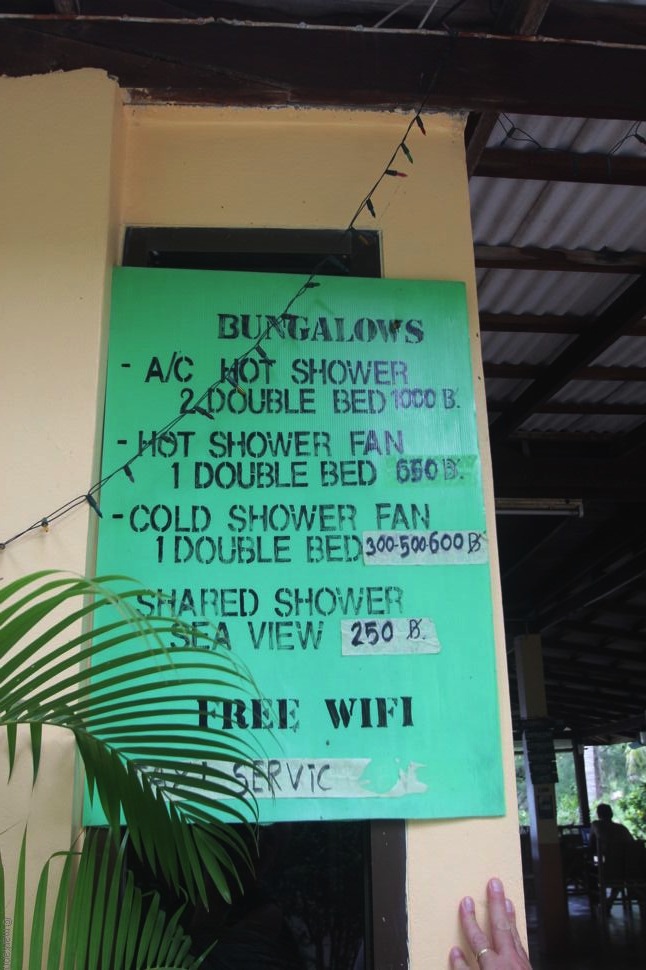 BUNGALOWS
- A/C HOT SHOWER
2 DOUBLE BED 1000 B.
- HOT SHOWER FAN
1 DOUBLE BED 650 B.
- COLD SHOWER FAN
1 DOUBLE BED 300-500-600 B
SHARED SHOWER
SEA VIEW 250 B.
FREE WIFI
TAXI SERVIC